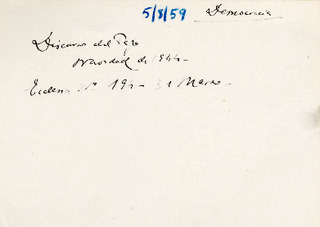 5/8/59 Democracia
Discurso del Papa
Navidad de 1944 -
Ecclesia nº 194 - 31 Marzo -